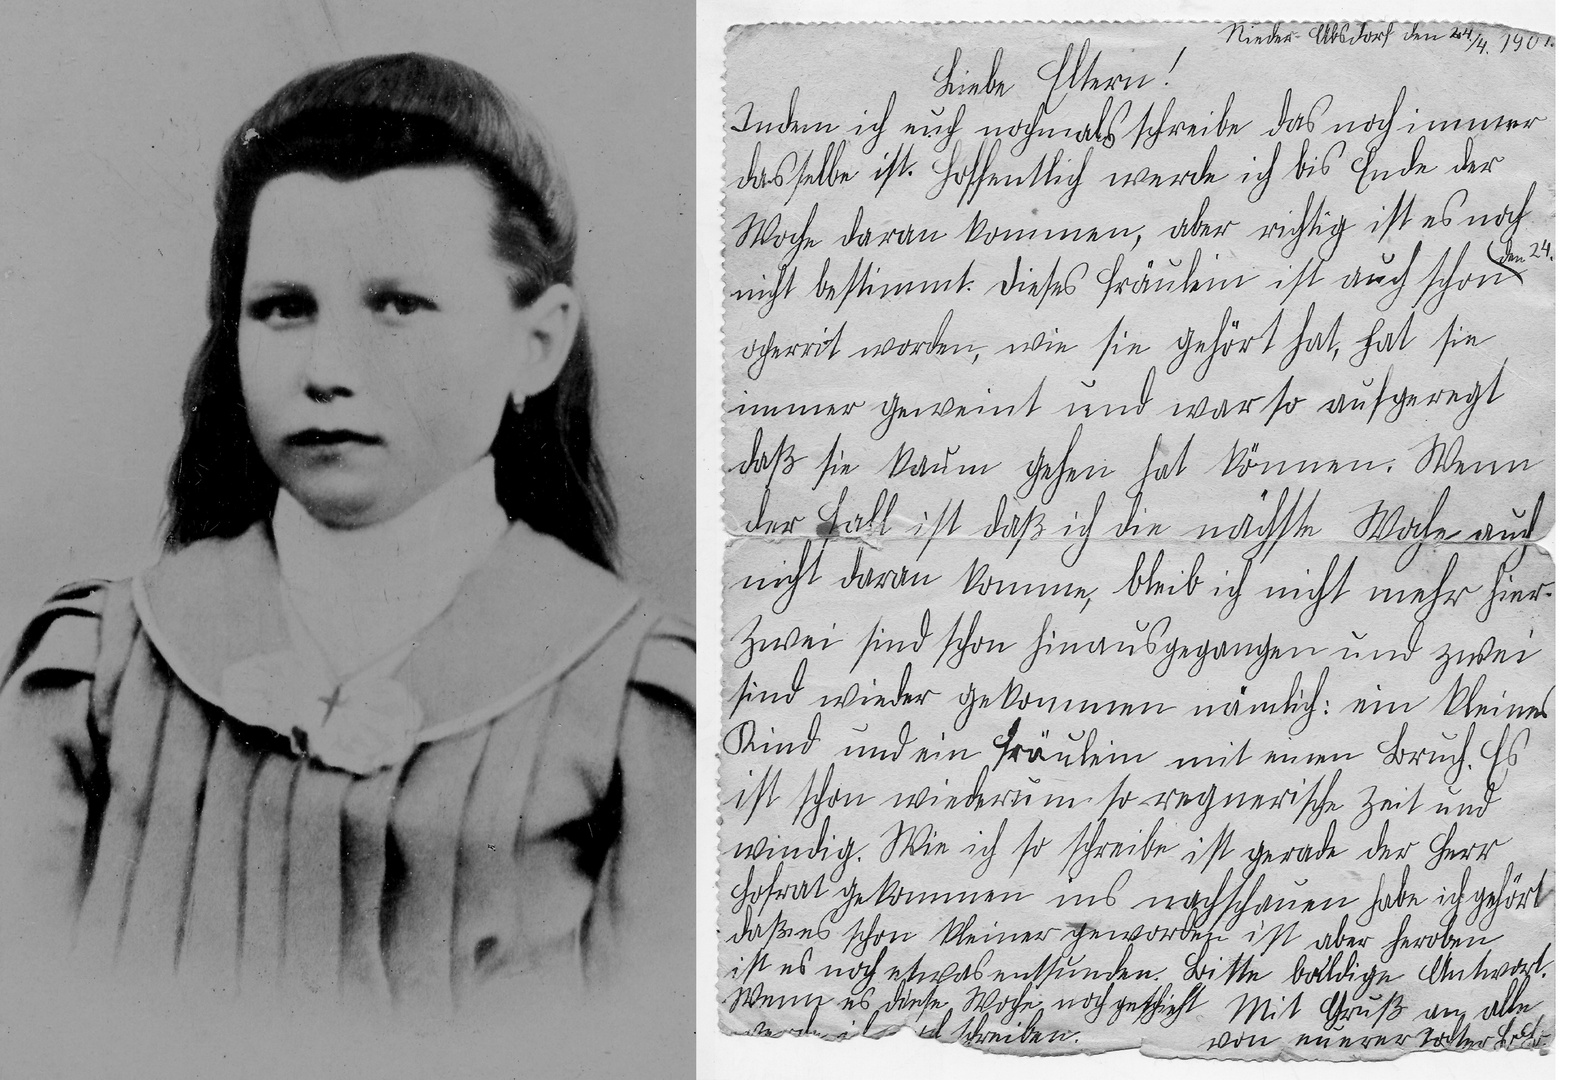 Nieder-Absdorf den 24/4. 190
Liebe Eltern!
Indem ich euch nochmals schreibe das noch immer
dasselbe ist. Hoffentlich werde ich bis Ende der
Woche daran kommen, aber richtig ist es noch
nicht bestimmt. Dieses Fräulein ist auch schon den 24.
operrit worden, wie sie gehört hat, hat sie
immer geweint und war so aufgeregt
daß sie kaum gehen hat können. Wenn
der Fall ist daß ich die nächste Woche auch
nicht daran komme, bleib ich nicht mehr hier.
Zwei sind schon hinausgegangen und zwei
sind wieder gekommen nämlich: ein kleines
Kind und ein Fräulein mit einen Bruch. Es
ist schon wiederum so regnerische Zeit und
windig. Wie ich so schreibe ist gerade der Herr
Hofrat gekommen uns nachschauen habe ich gehört
daß es schon kleiner geworden ist aber heroben
ist es noch etwas entsunden. Bitte baldige Antwort.
Wenn es diese Woche noch geschieht Mit Gruß an alle
schreiben. von euerer Tochter